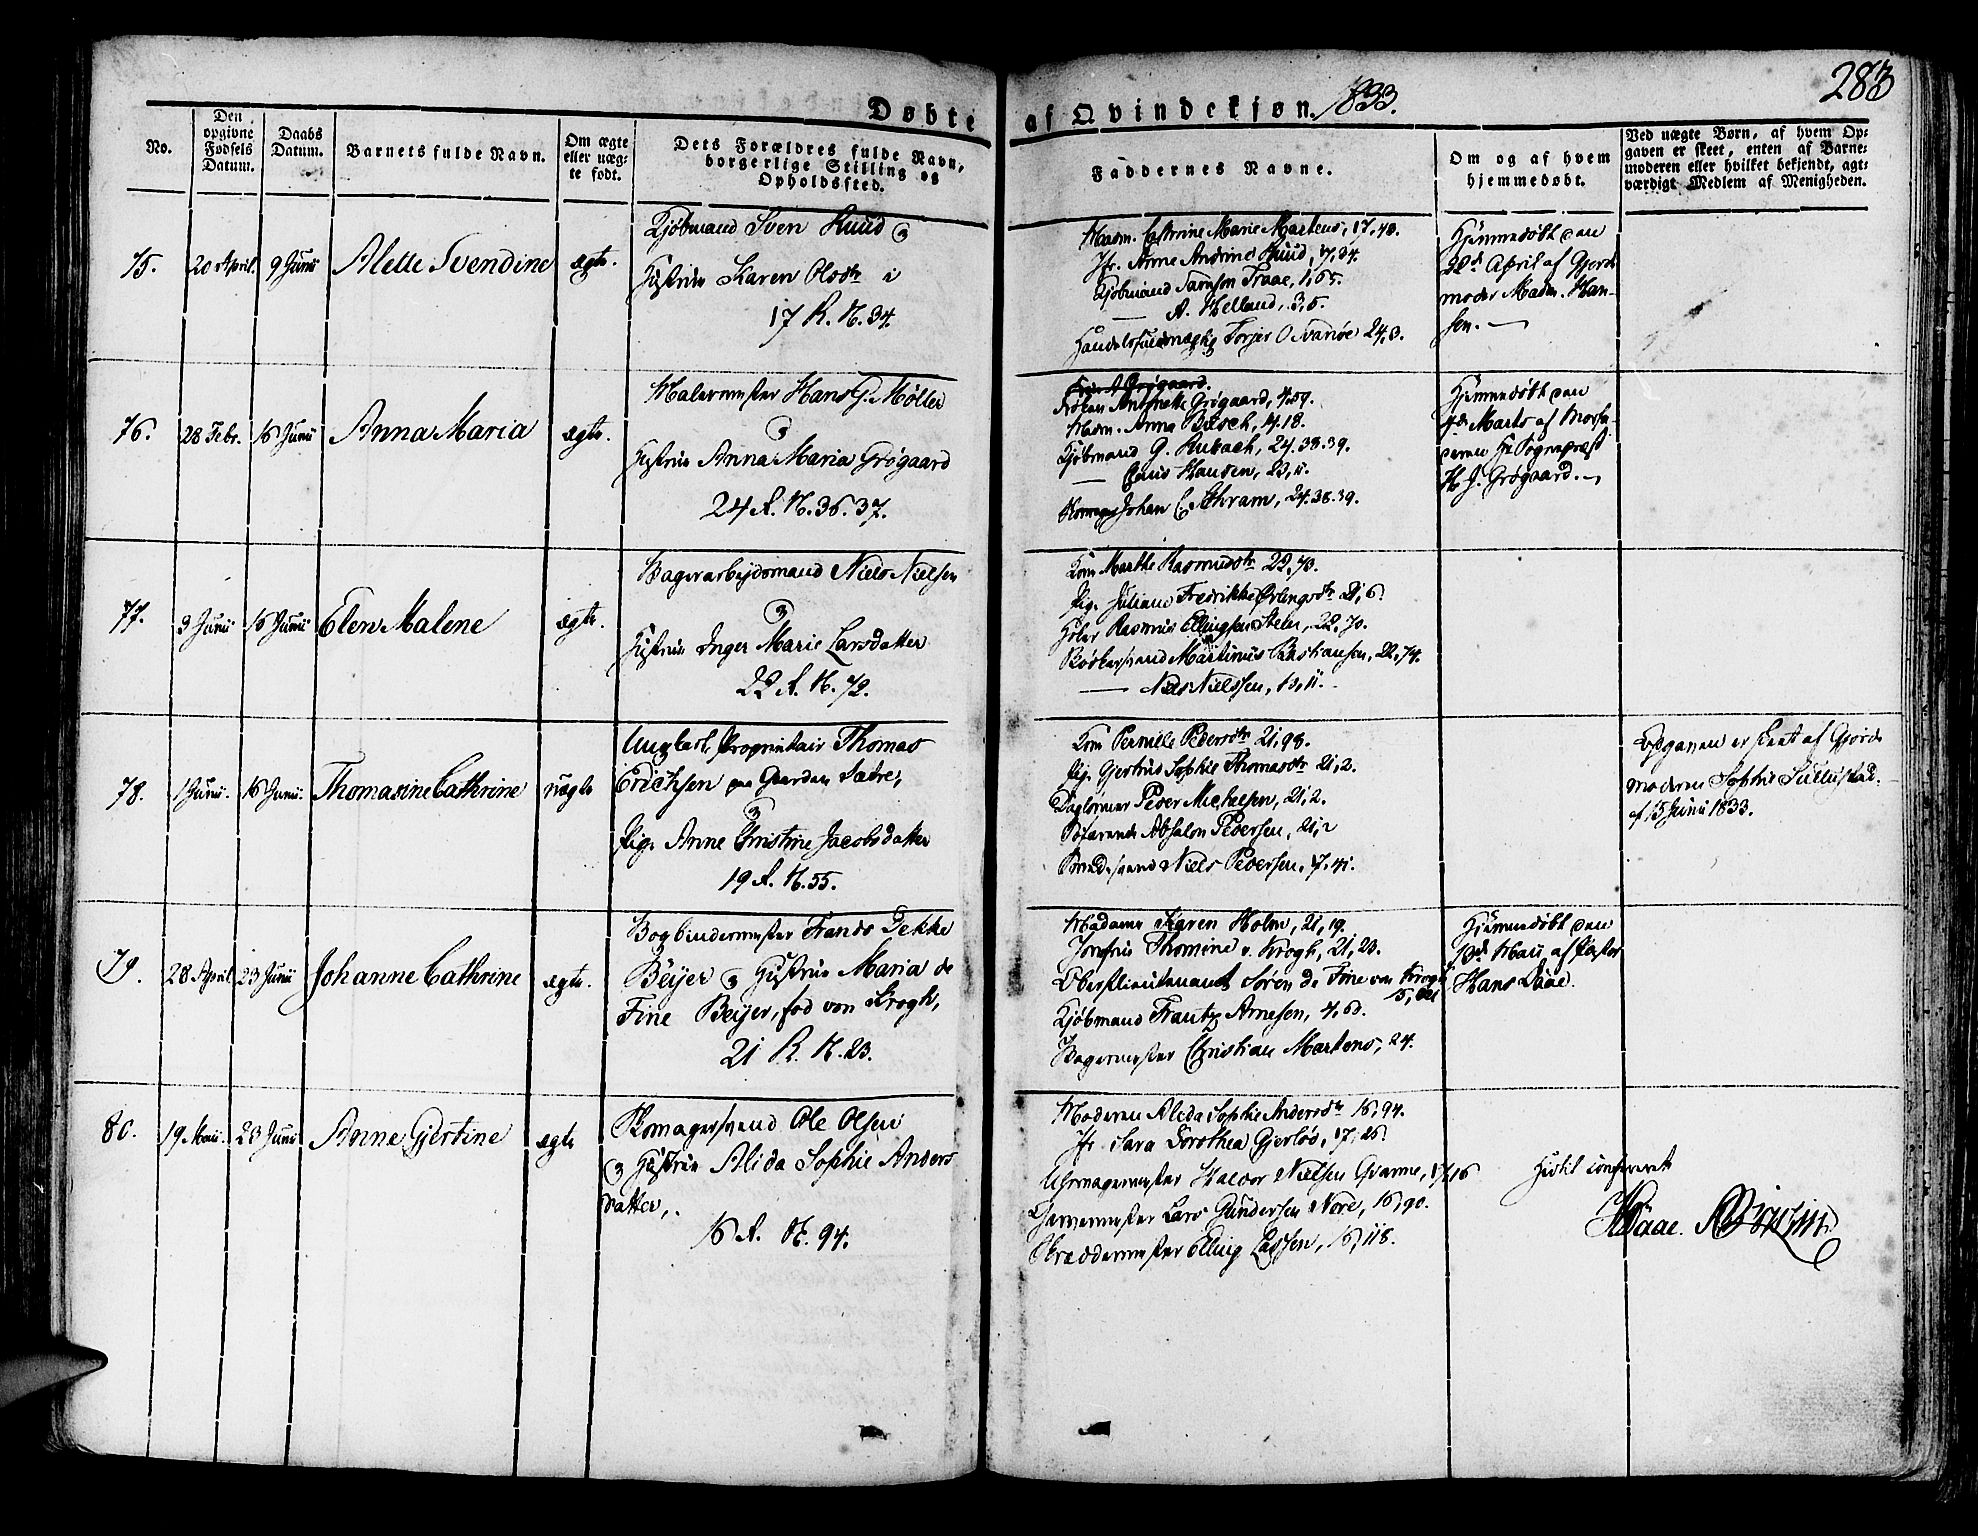 283
Døbte af Qvindekjøn. 1833.
No.
Den opgivne Fødsels Datum.
Daabs Datum.
Barnets fulde Navn.
Om ægte eller uæg-
te født.
Dets Forældres fulde Navn,
borgerlige Stilling og
Opholdssted.
Faddernes Navne.
Om og af hvem
hjemmedøbt.
Ved uægte Børn, af hvem Op-
gaven er skeet, enten af Barne-
moderen eller hvilket bekjendt, agt-
værdigt Medlem af Menigheden.
75.
20 April.
9 Junii
Alette Svendine
ægte.
Kjøbmand Sven Ruud &
Hustrue Karen Olsdr i
17 R. N. 34.
Madm. Cathrine Marie Martens, 17, 40.
Jfr. Anne Andrine Ruud, 17, 34.
Kjøbmand Samson Traae, 1, 65.
— A. Helland, 3, 5.
Torjer O Svanøe 24, 3.
Hjemmedøbt den
April af Gjorde
moder Madm. Han-
sen. —
76.
28 Febr.
16 Junii
Anna Maria
ægte.
Malermester Hans G. Møller
&
Hustrue Anna Maria Grøgaard
24 R. N. 36. 37.
Frøken Antonette Grøgaard, 4, 59.
Madm. Anna Büsch, 14. 18.
Kjøbmand G. Rubach, 24. 38. 39.
— Claus Hansen, 23, 11.
Johan C. Schram, 24. 38. 39.
Hjemmedøbt den
Marts af Morfa-
deren Hr Sognepræst
H. J. Grøgaard. —
77.
3 Junii
16 Junii
Elen Malene
ægte.
Bagerarbejdsmand Niels Nielsen
&
Hustrue Inger Marie Larsdatter
22 R. N. 72.
Kone Marthe Rasmusdr 22, 73.
Pig. Juliane Fredrikke Erlingsdr 21, 6.
Rasmus Ellingsen 22, 70.
Bødkersvend Martinus Bastiansen, 22, 74.
— Niels Nielssen, 13, 11.
78.
1 Junii.
16 Junii.
Thomasine Cathrine
uægte
Ungkarl, Proprietair Thomas
Erichsen paa Gaarden Sædre,
&
Pig. Anne Christine Jacobsdatter
19 R. N. 55.
Kone Pernille Pedersdr 21, 98.
Pig. Gjertrud Sophie Thomasdr 21, 2.
Dagløhner Peder Michelsen, 21, 2.
Søfarende Absalon Pedersen, 21, 2
Niels Pedersen, 17, 41.
Opgaven er skeet af Gjorde
moderen Sophie
af 15 Junii 1833.
79.
28 April
23 Junii
Johanne Cathrine
ægte.
Bogbindermester Frands Dekke
Beijer & Hustrue Maria de
Fine Beijer, fød von Krogh,
21 R. N. 23.
Madame Karen Holm, 21, 19.
Jomfrue Thomine v. Krogh, 21, 23.
Oberstlieutenant Søren de Fine von Krogh
Kjøbmand Frantz Arnesen, 4, 60.
Bagermester Christian Martens, 24.
Hjemmedøbt den
Maii, af Pastor
Hans Daae.
80.
19 Maii.
23 Junii
Anne Gjertine
ægte
Skomagersvend Ole Olsen
& Hustrue Alida Sophie Anders
datter,
16 R. N. 94.
Moderen Alida Sophie Andersdr 16, 94.
Jfr. Sara Dorothea Gjerløs, 17, 26.
Uhrmagermester Halvor Nielsen Gvarne, 17, 16
Garvermester Lars Gundersen Nord, 16, 90.
Skreddermester Elling Lassen, 16, 118.
Hidtil confereret
HDaae.